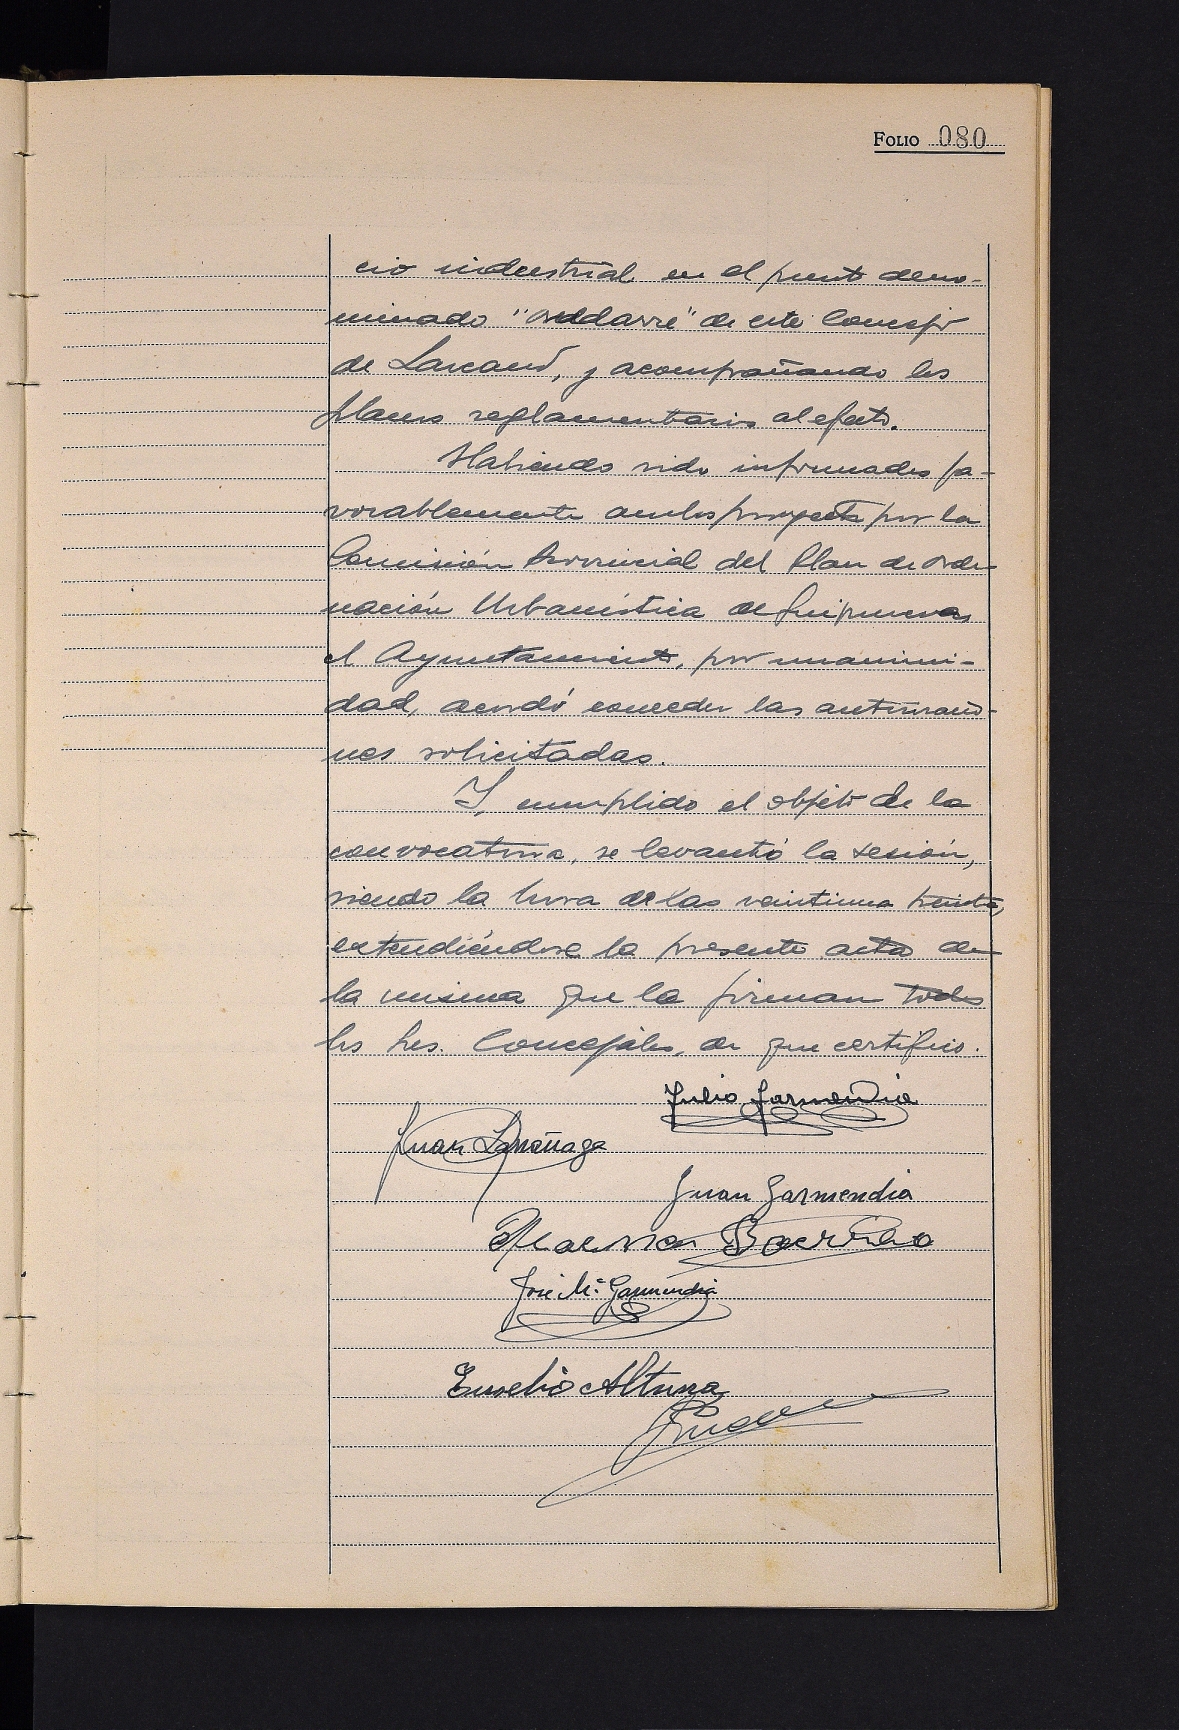 FOLIO 080
cio industrial en el punto deno-
minado "Olddarre" de este Concejo
de Lazcano, y acompañando los
planos reglamentarios al efecto.
Habiendo sido informados fa-
vorablemente ambos proyectos por la
Comisión Provincial del Plan de Orde-
nación Urbanística de Guipuzcoa
el Ayuntamiento, por unanimi-
dad, acordó conceder las autorizacio-
nes solicitadas.
Y, cumplido el objeto de la
convocatoria, se levantó la sesión,
siendo la hora de las veintiuna treinta,
extendiéndose la presente acta de
la misma que la firman todos
los Sres. Concejales, de que certifico.
Julio Garmendia
Juan Larrañaga
Juan Garmendia
José Mª Garmendia
Eusebio Altuna